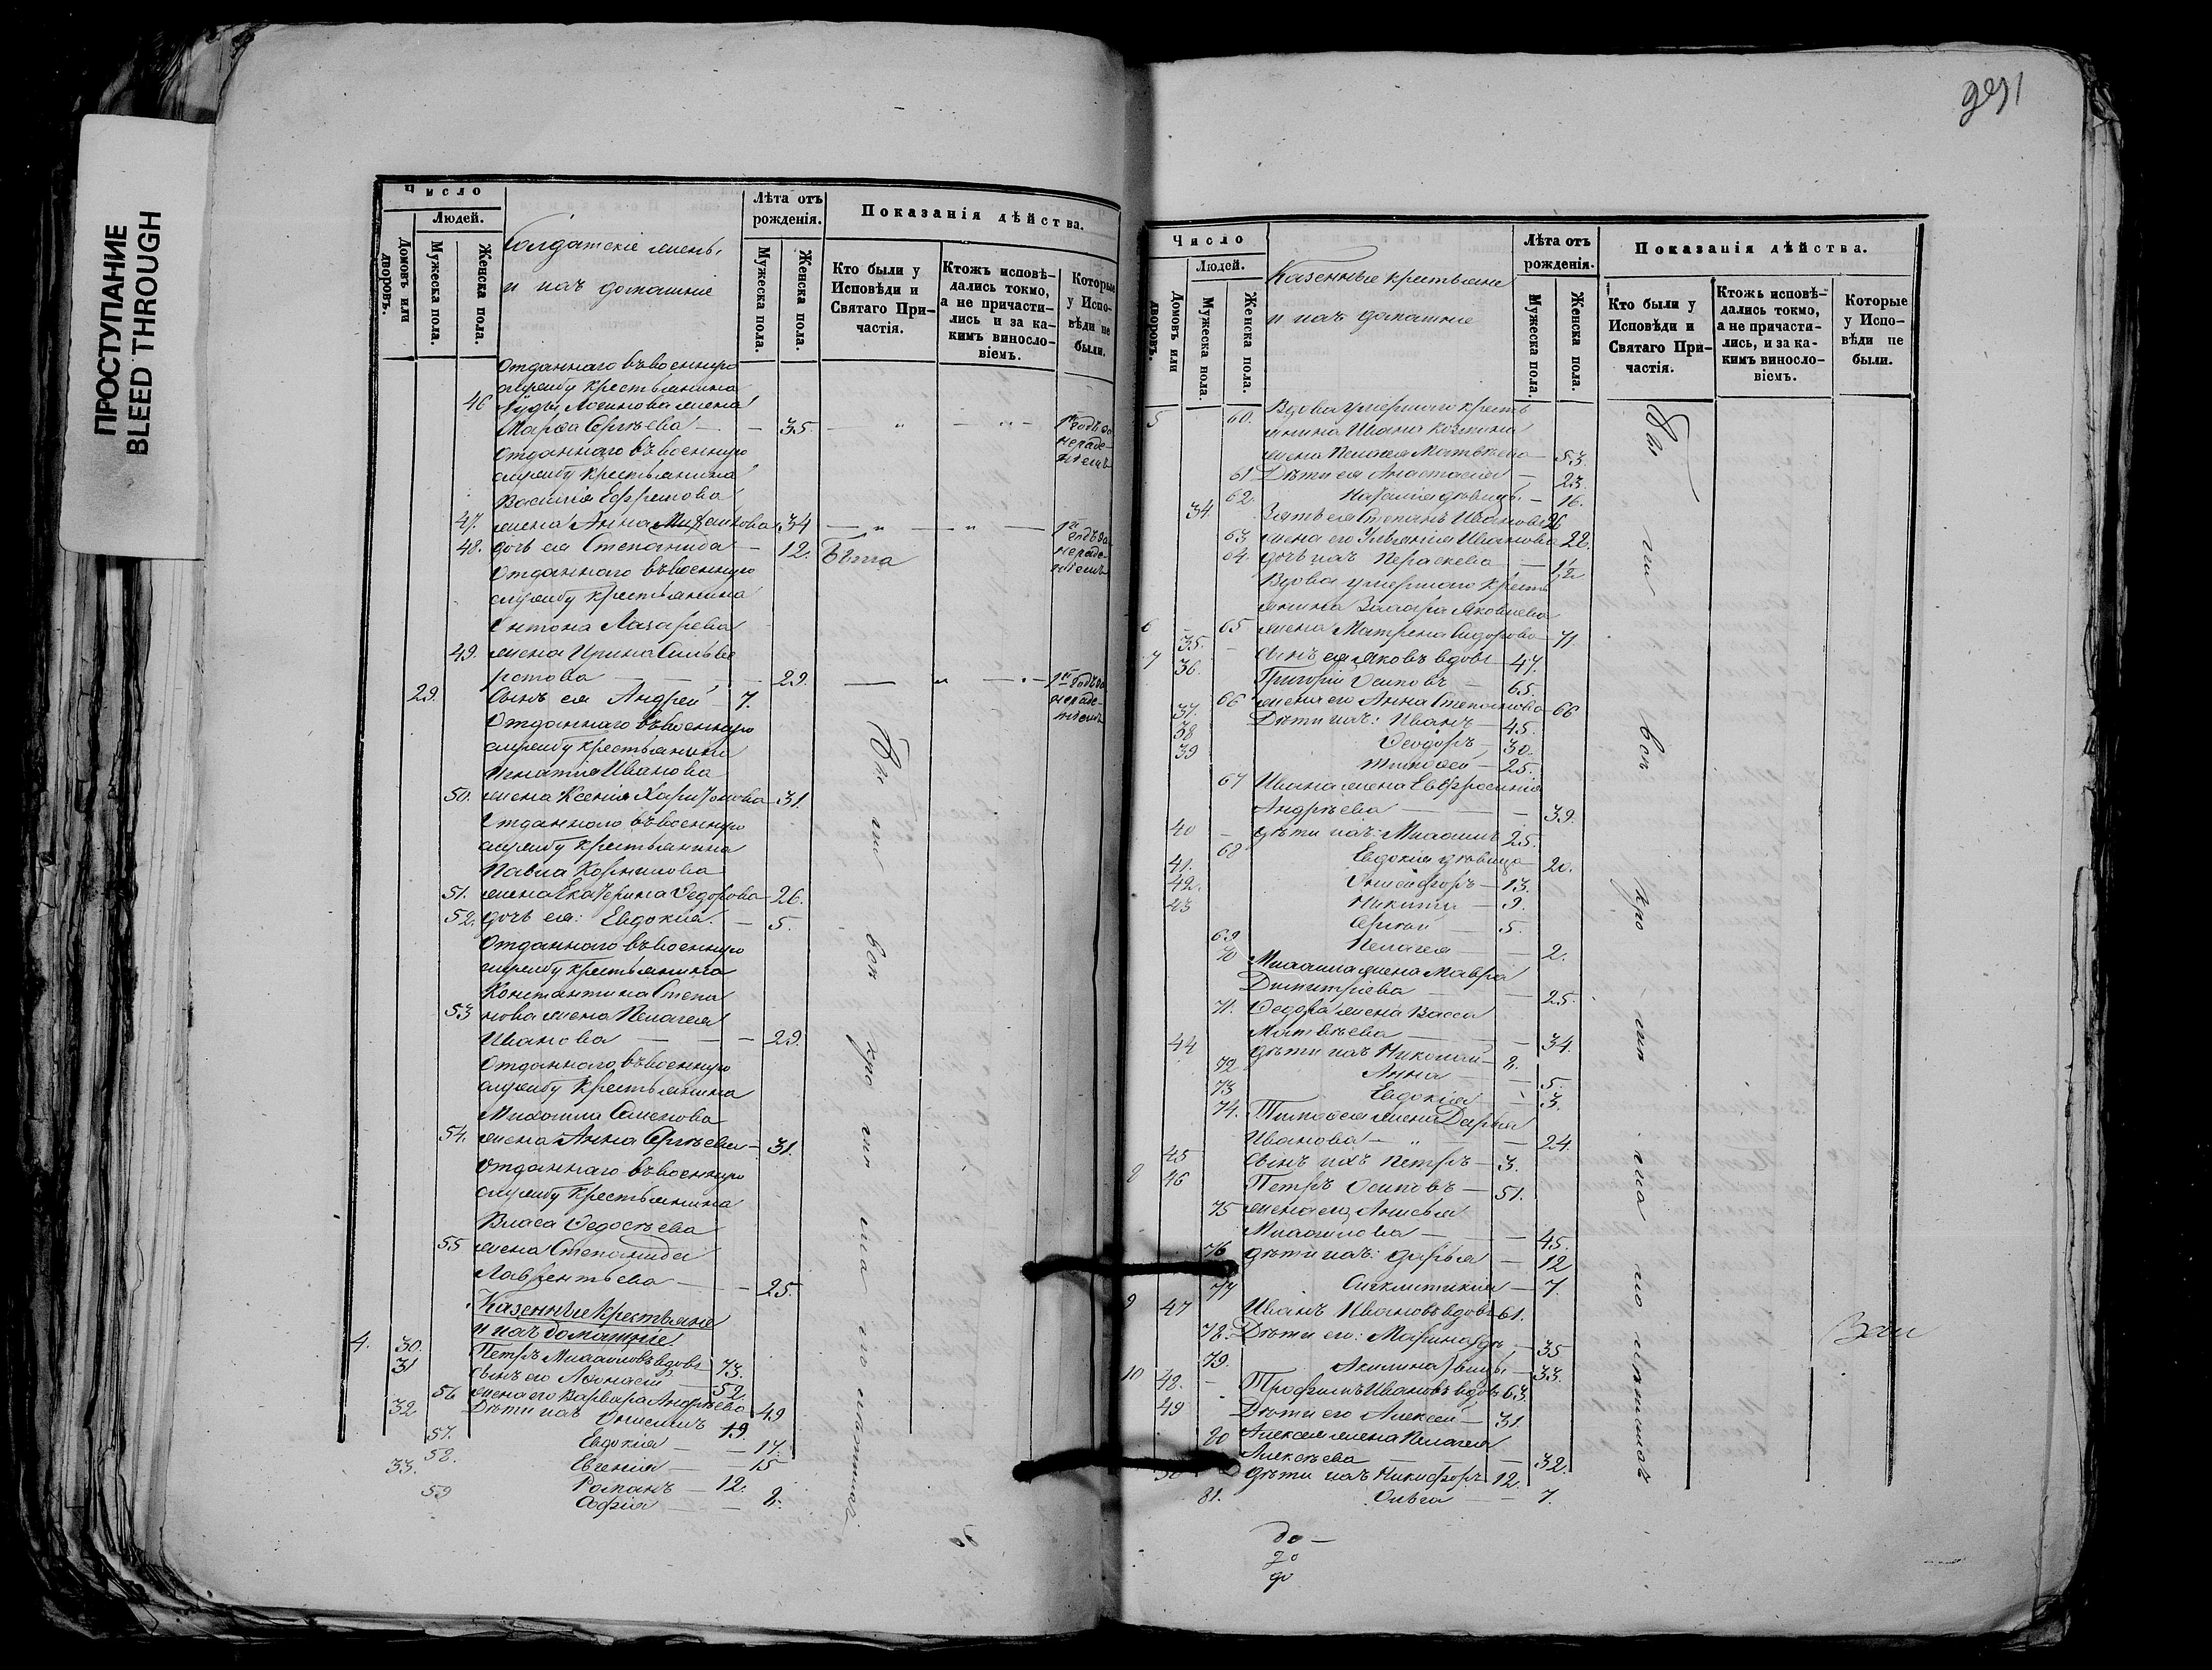 ПРОСТУПАНИЕ
BLEED THROUGH
Число
Людей.
Домовъ или дворовъ.
Мужеска пола.
Женска пола.
Солдатскіе жены,
и ихъ домашніе
Лѣта отъ рожденія.
Мужеска пола.
Женска пола.
Показанія дѣйства.
Кто были у Исповѣди и Святаго Причастія.
Ктожъ исповѣдались токмо, а не причастились и за какимъ винословіемъ.
Которые у Исповѣди не были.
Отданнаго въ военную
службу крестьянина
46 Логинова жена
Марѳа Сергѣева — — 35 — „ — „ — 1й годъ за нераденіемъ
Отданнаго въ военную
службу крестьянина
Василія Ефремова
47. жена Анна Михайлова 34 — „ — „ — 1й годъ за нераденіемъ
48. дочь ея Степанида — 12. Была
Отданнаго въ военную
службу крестьянина
Антона Лазарева
49. жена Ирина Сильве
рстова — — — 29. — „ — „ — 1й годъ за нераденіемъ
29. Сынъ ея Андрей 7.
Отданнаго въ военную
службу крестьянина
Игнатія Иванова
50. жена Ксенія Харитонова 31.
Отданнаго въ военную
службу крестьянина
Павла Корнилова
51. жена Екатерина Ѳедорова 26.
52. дочь ея: Евдокія. — 5.
Отданнаго въ военную
службу крестьянина
Константина Степа
53 нова жена Пелагея
Иванова — — — 29.
Отданнаго въ военную
службу крестьянина
Михаила Семенова
54. жена Анна Сергѣева — 31.
Отданнаго въ военную
службу крестьянина
Власа Ѳедосѣева
55 жена Степанида
Лаврентьева — — 25.
Казенные крестьяне
и ихъ домашніе.
4. 30. Петръ Михайловъ вдовъ 73.
31 Сынъ его Аѳонасій 52.
56 жена его Варвара Андрѣева 49
32 Дѣти ихъ Онисимъ 19.
57. Евдокія — — 17.
58. Евгенія — — 15
33. Романъ — 12.
59 Софія — — 8.
Бы ли вси кро ма ло
Число
Людей.
Домовъ или дворовъ.
Мужеска пола.
Женска пола.
Казенные крестьяне
и ихъ домашніе
Лѣта отъ рожденія.
Мужеска пола.
Женска пола.
Показанія дѣйства.
Кто были у Исповѣди и Святаго Причастія.
Ктожъ исповѣдались токмо, а не причастились, и за какимъ винословіемъ.
Которые у Исповѣди не были.
5 60. Вдова умершаго кресть
янина Ивана Козмина
жена Пелагея Матвѣева — 53.
61 Дѣти ея Анастасія — 23.
62. Наталія дѣвицы — 16.
34. Зять ея Степанъ Ивановъ 26
63 жена его Ульянія Иванова 22.
64. дочь ихъ Параскева — 1/2
Вдова умершаго кресть
янина Захара Яковлева
6 65 жена Матрена Сидорова 71.
35. Сынъ ея Яковъ вдовъ 47.
7 36. Григорій Осиповъ — 65.
66 жена его Анна Степанова 66
37. Дѣти ихъ: Иванъ — 45.
38 Ѳеодоръ — 30.
39 Тимоѳей — 25.
67 Ивана жена Евфросинія
Андрѣева — — 39.
40 дѣти ихъ: Михаилъ 25.
68 Евдокія дѣвица 20.
41. Онисифоръ — 13.
42. Никита — 9.
43 Сергей — 5.
69 Пелагея — 2.
70 Михаила жена Мавра
Димитріева — — 25.
71. Ѳедора жена Васса
Матвѣева — — 34.
44 дѣти ихъ Николай — 8.
72 Анна — — 5.
73 Евдокія — — 3.
74. Тимоѳея жена Дарья
Иванова — „ — 24.
45 Сынъ ихъ Петръ — 3.
8 46 Петръ Осиповъ — 51.
75 жена его Анисья
Михайлова — — 45.
76 дѣти ихъ: Дарья — 12
77 Синклитикія — 7.
9 47 Иванъ Ивановъ вдовъ 61.
78. Дѣти его: Марина дѣ — 35
79. Акилина вицы — 33.
10 48. Трофимъ Ивановъ вдовъ 63.
49 Дѣти его Алексей — 31.
80 Алексея жена Пелагея
Алексѣева — — 32.
50 дѣти ихъ Никифоръ 12.
81. Ольга — — 7.
Бы ли вси кро ма ло